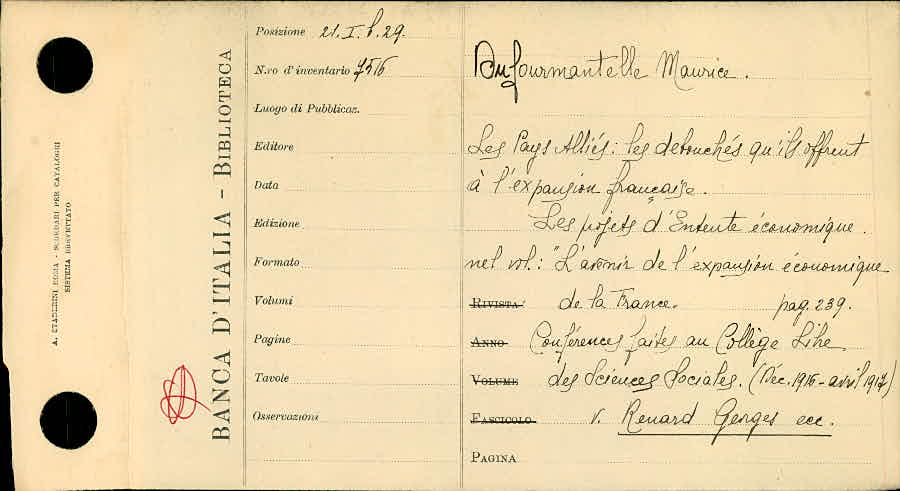 A. STADERINI ROMA - SCHEDARI PER CATALOGHI
SISTEMA BREVETTATO
BANCA D'ITALIA - BIBLIOTECA
Posizione 21. I. b. 29.
N.ro d'inventario 7516
Luogo di Pubblicaz.
Editore
Data
Edizione
Formato
Volumi
Pagine
Tavole
Osservazioni
Dufourmantelle Maurice.
Les Pays Alliés: les debouchés qu'ils offrent
à l'expansion française.
Les projets d'Entente économique.
nel vol.: "L'avenir de l'expansion économique
RIVISTA de la France. pag. 239.
ANNO Conférences faites au Collège Libre
VOLUME des Sciences Sociales. (Déc. 1916 - avril 1917)
FASCICOLO v. Renard Georges ecc.
PAGINA